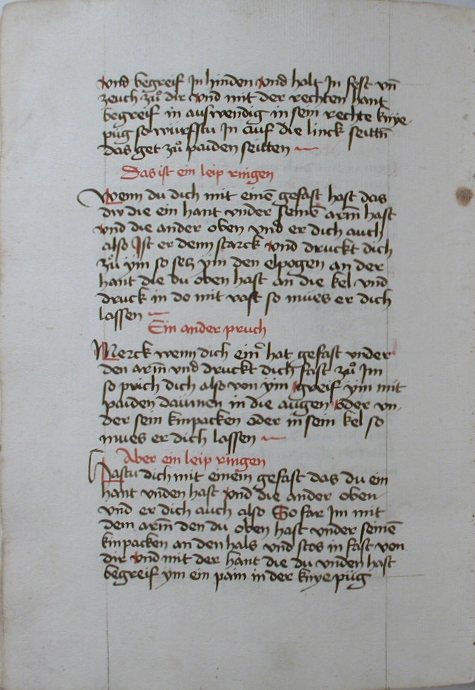 vnd begreif In hinden vnd halt In fest vñ
zeuch zů dir vnd mit der rechten hant
begreif in auswendig in sein rechte knye
püg so wurfstu In auf die linck seittñ
das get zů paiden seitten
Das ist ein leip ringen
Wenn du dich mit eine͂ gefast hast das
du die ein hant vnder seine͂ arm͂ hast
vnd die ander oben vnd er dich auch
also Ist er denn starck vnd druckt dich
zů ym so secz ym den elpogen an der
hant die du oben hast an die kel vnd
druck in do mit vast so mues er dich
lassen
Ein ander pruch
Merck wenn dich einer hat gefast vnder
den arm͂ vnd druckt dich fast zů Im
so prich dich also von ym greif ym mit
paiden daumen in die augen oder vn
der sein kinpacken oder in sein kel so
mues er dich lassen
Aber ein leip ringen
Hastu dich mit einem gefast das du ein
hant vnden hast vnd die ander oben
vnd er dich auch also So far Im mit
dem arm͂ den du oben hast vnder seine͂
kinpacken an den hals vnd stos in fast von
dir vnd mit der hant die du vnden hast
begreif ym ein pain in der knye püg